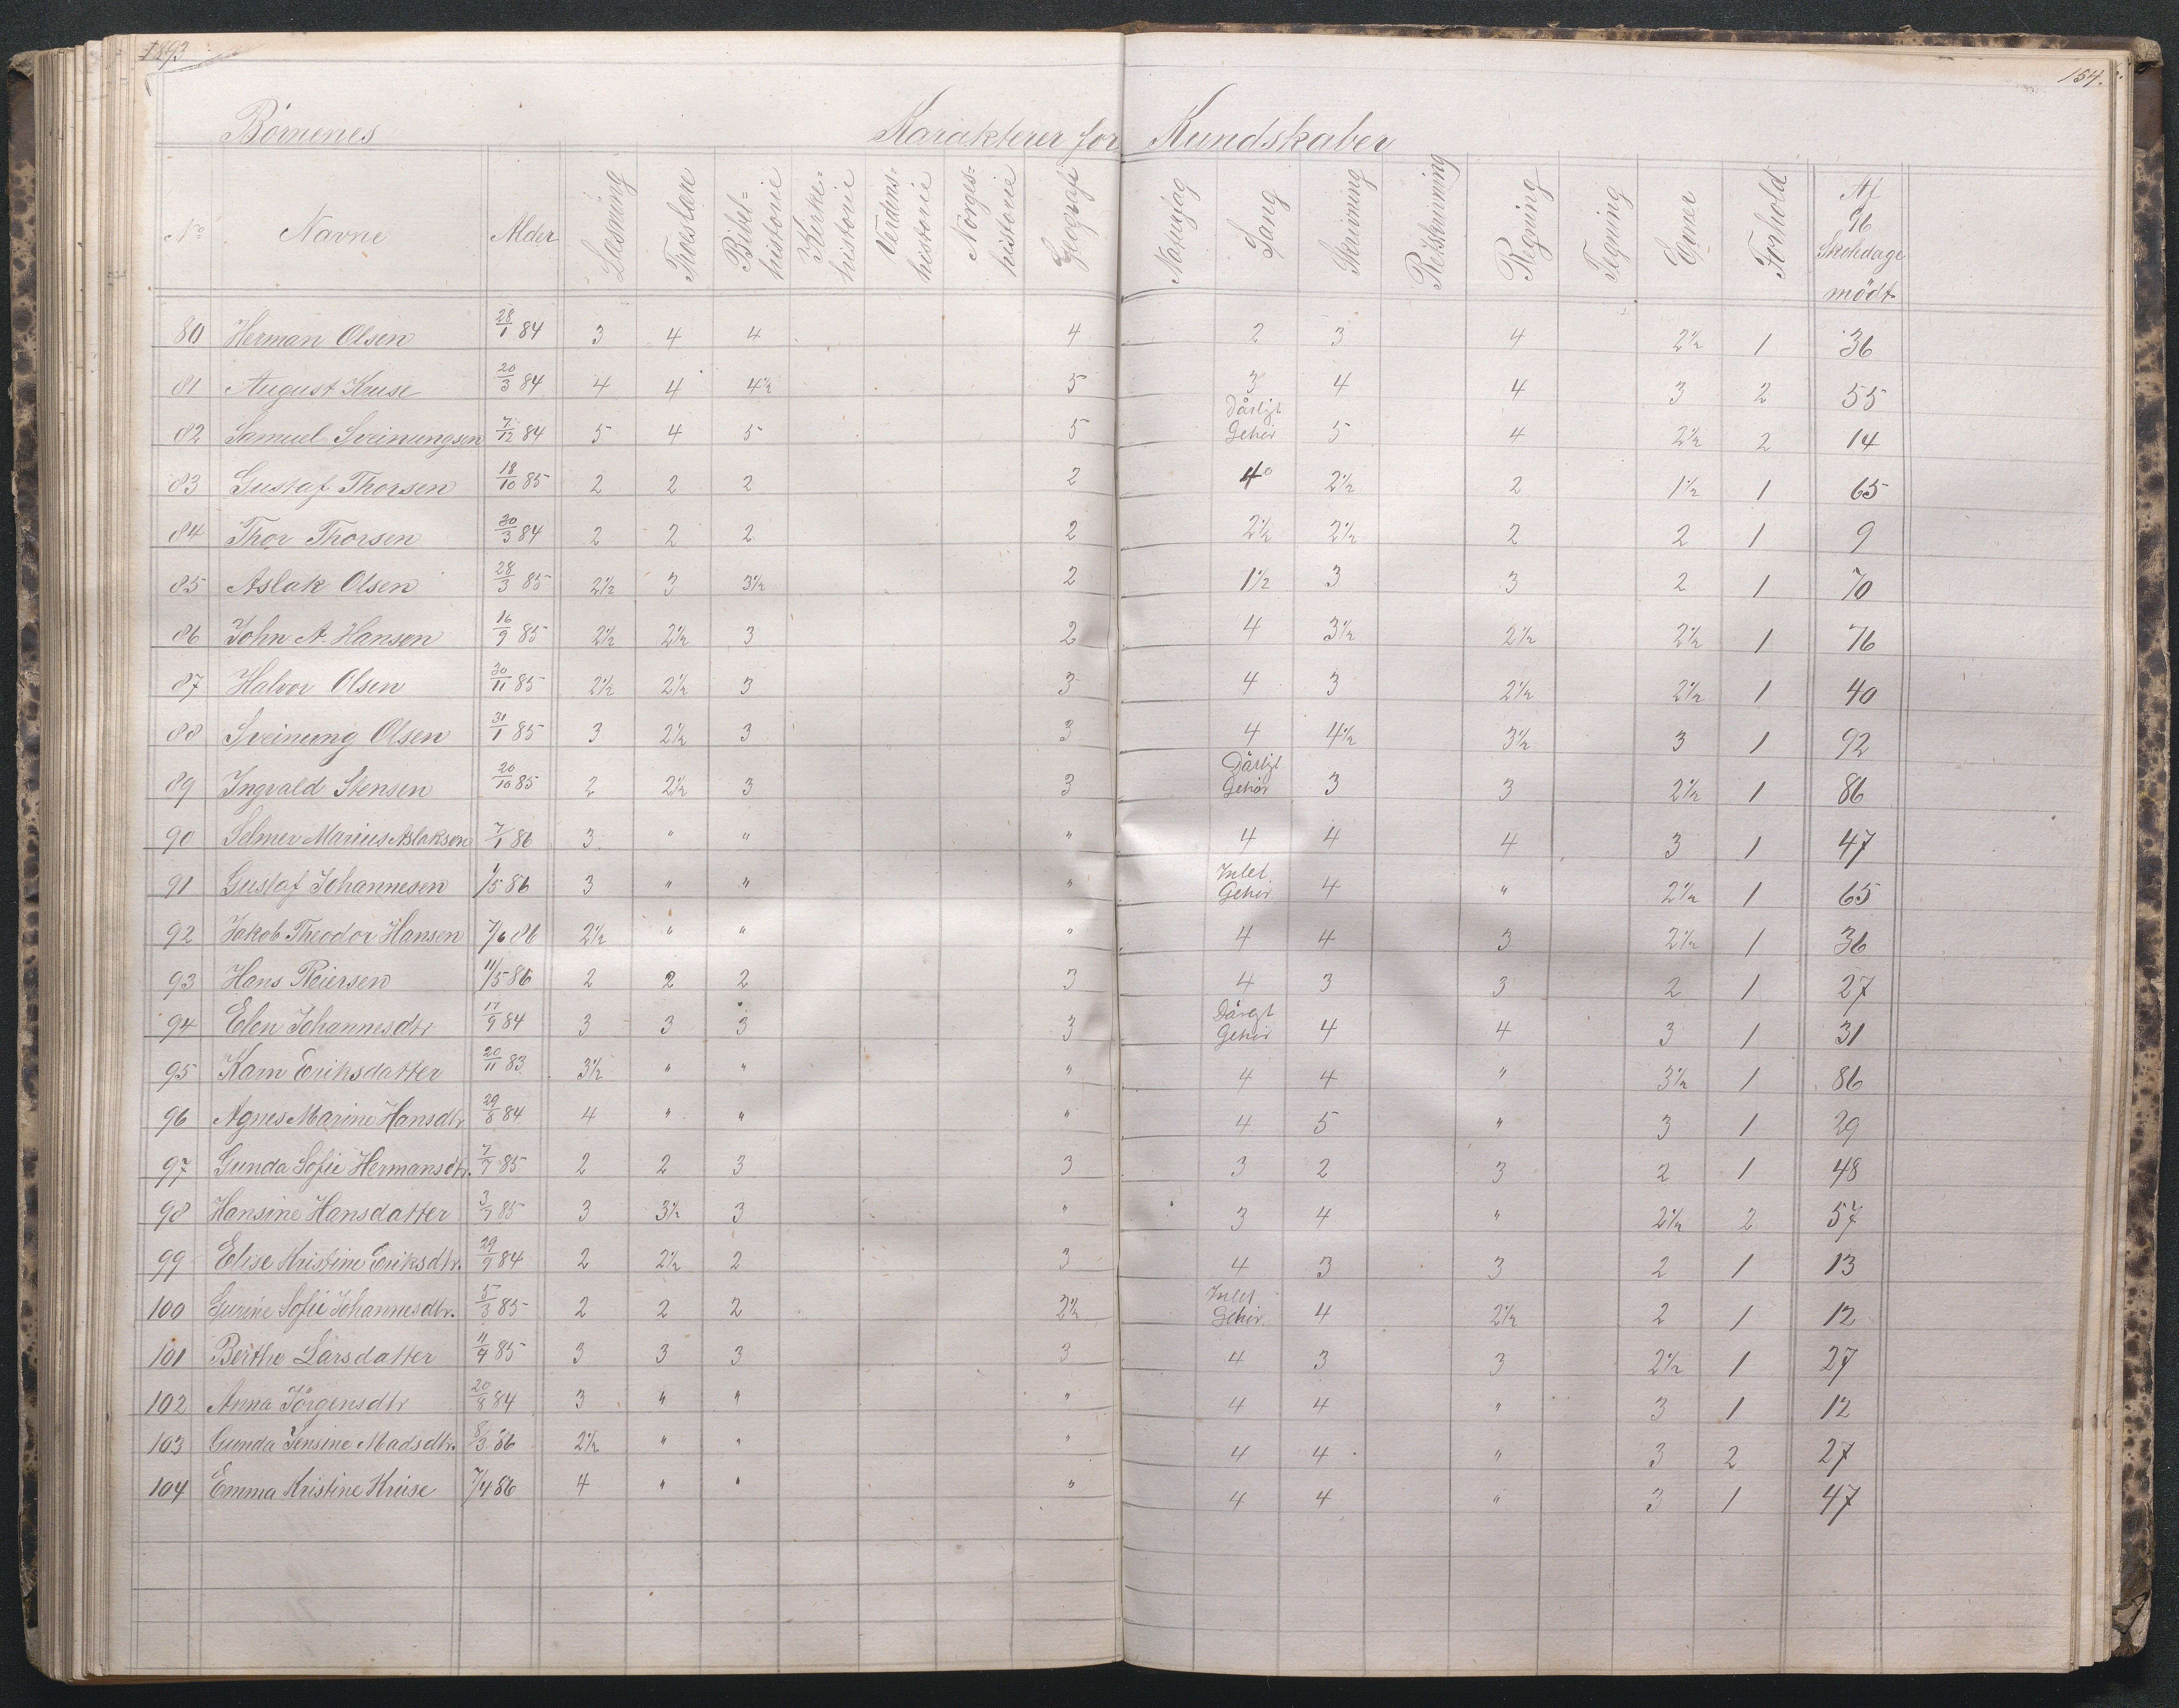 1893
154.
Børnenes Karakterer for Kundskaber
No Navne Alder Læsning Troeslære Bibel=historie Kirke=historie Verdens=historie Norges=historie Geografi Naturfag Sang Skrivning Retskrivning Regning Tegning Evner Forhold Af 96 Skoledage mödt
80 Herman Olsen 28/1 84 3 4 4 4 2 3 4 2½ 1 36
81 August Kruse 20/3 84 4 4 4½ 5 3 4 4 3 2 55
82 Samuel Sveinungsen 7/12 84 5 4 5 5 Dårligt Gehør 5 4 2½ 2 14
83 Gustaf Thorsen 18/10 85 2 2 2 2 4 2½ 2 1½ 1 65
84 Thor Thorsen 30/3 84 2 2 2 2 2½ 2½ 2 2 1 9
85 Aslak Olsen 28/3 85 2½ 3 3½ 2 1½ 3 3 2 1 70
86 John A. Hansen 16/9 85 2½ 2½ 3 2 4 3½ 2½ 2½ 1 76
87 Halvor Olsen 30/11 85 2½ 2½ 3 3 4 3 2½ 2½ 1 40
88 Sveinung Olsen 31/1 85 3 2½ 3 3 4 4½ 3½ 3 1 92
89 Ingvald Stensen 20/10 85 2 2½ 3 3 Dårligt Gehør 3 3 2½ 1 86
90 Selmer Marius Aslaksen 7/1 86 3 " " " 4 4 4 3 1 47
91 Gustaf Johannesen 1/5 86 3 " " " Intet Gehør 4 " 2½ 1 65
92 Jakob Theodor Hansen 7/6 86 2½ " " " 4 4 3 2½ 1 36
93 Hans Reiersen 11/5 86 2 2 2 3 4 3 3 2 1 27
94 Elen Johannesdtr 17/9 84 3 3 3 3 Dårligt Gehør 4 4 3 1 31
95 Karn Eriksdatter 20/11 83 3½ " " " 4 4 " 3½ 1 86
96 Agnes Marine Hansdtr 29/8 84 4 " " " 4 5 " 3 1 29
97 Gunda Sofie Hermansdtr. 7/7 85 2 2 3 3 3 2 3 2 1 48
98 Hansine Hansdatter 3/7 85 3 3½ 3 " 3 4 " 2½ 2 57
99 Elise Kristine Eriksdtr. 29/9 84 2 2½ 2 3 4 3 3 2 1 13
100 Gurine Sofie Johannesdtr. 5/3 85 2 2 2 2½ Intet Gehør. 4 2½ 2 1 12
101 Berthe Larsdatter 11/4 85 3 3 3 3 4 3 3 2½ 1 27
102 Anna Jörgensdtr 20/8 84 3 " " " 4 4 " 3 1 12
103 Gunda Jensine Madsdtr. 8/3 86 2½ " " " 4 4 " 3 2 27
104 Emma Kristine Kruse 7/4 86 4 " " " 4 4 " 3 1 47